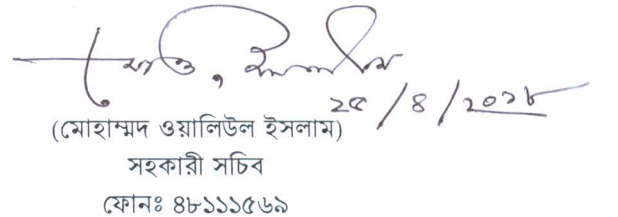 ২৫/৪/২০১৮
(মোহাম্মদ ওয়ালিউল ইসলাম)
সহকারী সচিব
ফোনঃ ৪৮১১১৫৬৯